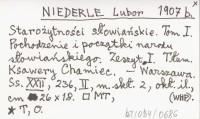 NIEDERLE Lubor 1907 b.
Starożytności słowiańskie. Tom I.
Pochodzenie i początki narodu
słowiańskiego. Zeszyt I. Tłum.
Ksawery Chamiec. — Warszawa.
Ss. XXII, 236, II, m. skł. 2, okł. il.,
cm 26 × 18. □ MT,
(WHP).
* T, O.
bT/084/0686